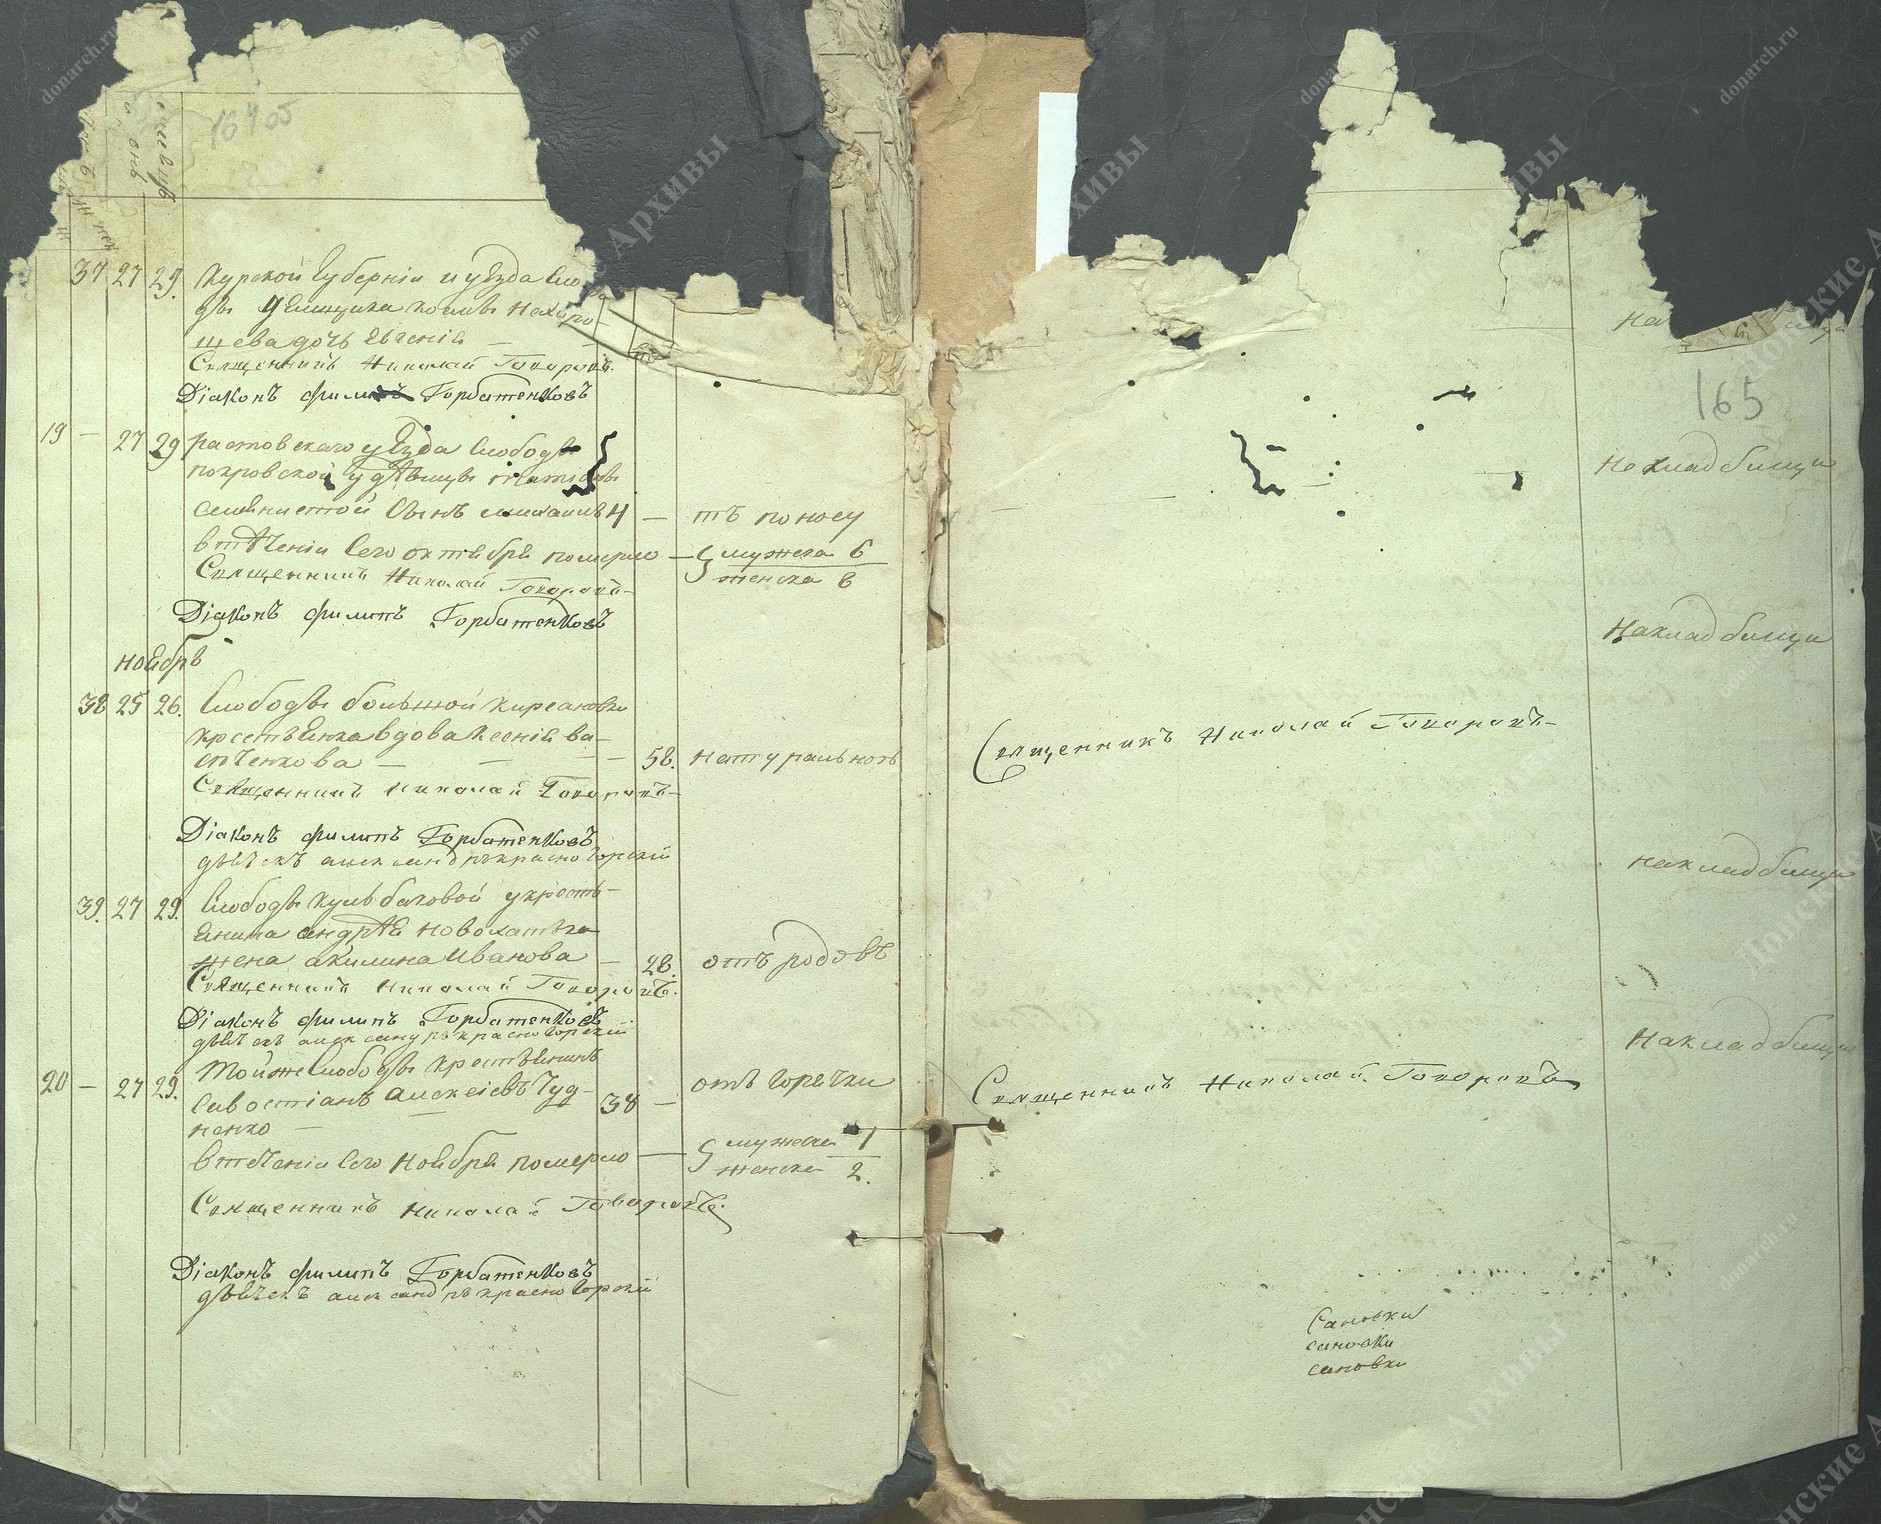 16705
37 27 29. Курской Губерніи и уезда Сло
ды
щева дочь Евгенія
Священникъ Николай Говоровъ.
Діаконъ филипъ Горбатенковъ
19 — 27 29 растовскаго уезда Слободы
покровской у девицы
сынъ михаилъ 4 — тъ поносу
втеченіи Сего октября померло — мужеска 6
женска 8
Священникъ Николай Говоровъ
Діаконъ филипъ Горбатенковъ
ноябрь
38 25 26. Слободы большой кирсановки
крестьянка вдова ксенія ва-
сченкова — 58. натуральною
Священникъ Николай Говоровъ
Діаконъ филипъ Горбатенковъ
дьячекъ александръ красногорскій
39. 27 29. Слободы кульбаковой у кресть-
янина андрея
жена акилина Иванова — 28. отъ родовъ
Священникъ Николай Говоровъ.
Діаконъ филипъ Горбатенковъ
дьячекъ александръ красногорскій
20 — 27 29. Той же Слободы крестьянинъ
Савостіанъ алексіевъ Чуд-
ненко — 38 — отъ Горячки
втеченіи Сего Ноября померло — мужеска 1
женска 2.
Священникъ Николай Говоровъ.
Діаконъ филипъ Горбатенковъ
дьячекъ александръ красногорскій
на
165
На кладбищи
На кладбищи
Священникъ Николай Говоровъ
на кладбищи
На кладбищи
Священникъ Николай Говоровъ
Сановки
сановки
сановки
Донские Архивы
donarch.ru